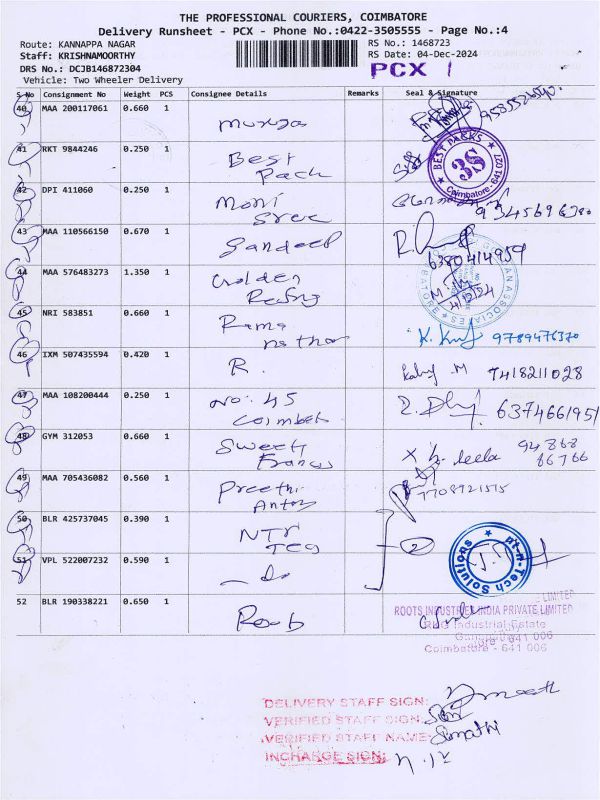 THE PROFESSIONAL COURIERS, COIMBATORE
Delivery Runsheet - PCX - Phone No.:0422-3505555 - Page No.:4
Route: KANNAPPA NAGAR
RS No.: 1468723
Staff: KRISHNAMOORTHY
RS Date: 04-Dec-2024
DRS No.: DCJB146872304
PCX 1
Vehicle: Two Wheeler Delivery
S No Consignment No Weight PCS Consignee Details Remarks Seal & Signature
40 MAA 200117061 0.660 1
41 RKT 9844246 0.250 1 Best Pack
BEST PARKS 3S Coimbatore - 641 027
42 DPI 411060 0.250 1 Moni Sree 9345696380
43 MAA 110566150 0.670 1 Sandeep 6380414959
44 MAA 576483273 1.350 1 Golden 4/12/24
45 NRI 583851 0.660 1 Rama nathan 9789476370
46 IXM 507435594 0.420 1 R. M 7418211028
47 MAA 108200444 0.250 1 No: 45 6374661951
48 GYM 312053 0.660 1 Sweety Francis X leela 94868 66766
49 MAA 705436082 0.560 1 Preethi Antony 7708921515
50 BLR 425737045 0.390 1 NTR
2
nt-n-Tech Solutions
51 VPL 522007232 0.590 1 - do
52 BLR 190338221 0.650 1 Roots
ROOTS INDUSTRIES INDIA PRIVATE LIMITED
Industrial Estate
Coimbatore - 641 006
DELIVERY STAFF SIGN:
VERIFIED STAFF SIGN:
VERIFIED STAFF NAME: Sumathi
INCHARGE SIGN: